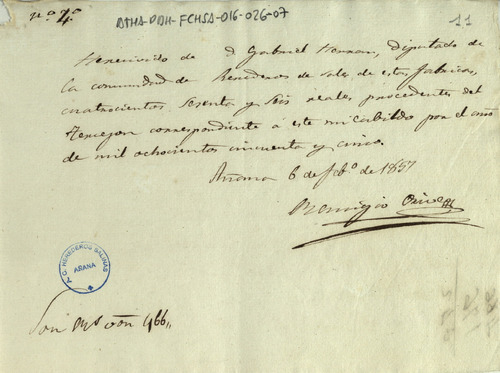 nº 4º
ATHA-DAH-FCHSA-016-026-07
11
He recivido de D. Gabriel Herran, Diputado de
la comunidad de Herederos de sales de estas fabricas,
cuatrocientos sesenta y seis reales, procedentes del
correspondiente á este mi cabildo por el año
de mil ochocientos cincuenta y cinco.
Añana 6 de feb.º de 1857
Remigio
A.C. HEREDEROS SALINAS
AÑANA
Son Rs von 466,,